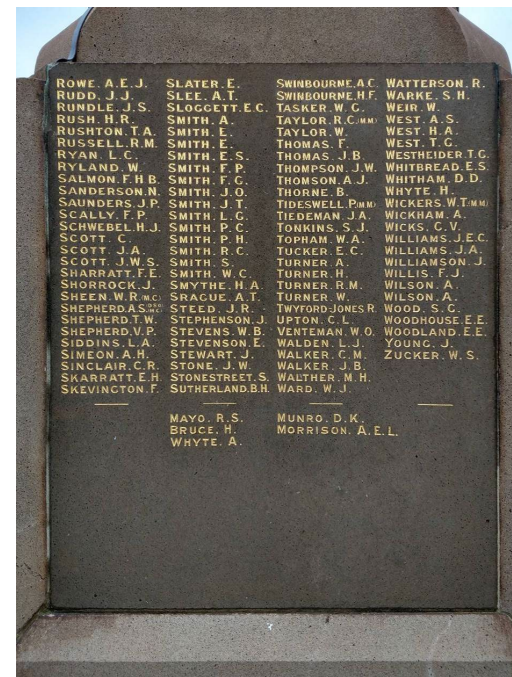 ROWE. A.E.J.
RUDD. J.J.
RUNDLE. J.S.
RUSH. H.R.
RUSHTON. T.A.
RUSSELL. R.M.
RYAN. L.C.
RYLAND. W.
SALMON. F.H.B.
SANDERSON. N.
SAUNDERS. J.P.
SCALLY. F.P.
SCHWEBEL. H.J.
SCOTT. C.
SCOTT. J.A.
SCOTT. J.W.S.
SHARRATT. F.E.
SHORROCK. J.
SHEEN. W.R. (M.C.)
SHEPHERD. A.S. (D.S.O. M.C.)
SHEPHERD. T.W.
SHEPHERD. V.P.
SIDDINS. L.A.
SIMEON. A.H.
SINCLAIR. C.R.
SKARRATT. E.H.
SKEVINGTON. F.
SLATER. E.
SLEE. A.T.
SLOGGETT. E.C.
SMITH. A.
SMITH. E.
SMITH. E.
SMITH. E.S.
SMITH. F.P.
SMITH. F.G.
SMITH. J.O.
SMITH. J.T.
SMITH. L.G.
SMITH. P.C.
SMITH. P.H.
SMITH. R.C.
SMITH. S.
SMITH. W.C.
SMYTHE. H.A.
SPRAGUE. A.T.
STEED. J.R.
STEPHENSON. J.
STEVENS. W.B.
STEVENSON. E.
STEWART. J.
STONE. J.W.
STONESTREET. S.
SUTHERLAND. B.H.
MAYO. R.S.
BRUCE. H.
WHYTE. A.
SWINBOURNE. A.C.
SWINBOURNE. H.F.
TASKER. W.G.
TAYLOR. R.C. (M.M)
TAYLOR. W.
THOMAS. F.
THOMAS. J.B.
THOMPSON. J.W.
THOMSON. A.J.
THORNE. B.
TIDESWELL. P. (M.M)
TIEDEMAN. J.A.
TONKINS. S.J.
TOPHAM. W.A.
TUCKER. E.C.
TURNER. A.
TURNER. H.
TURNER. R.M.
TURNER. W.
TWYFORD-JONES R.
UPTON. C.L.
VENTEMAN. W.O.
WALDEN. L.J.
WALKER. C.M.
WALKER. J.B.
WALTHER. M.H.
WARD. W.J.
MUNRO. D.K.
MORRISON. A.E.L.
WATTERSON. R.
WARKE. S.H.
WEIR. W.
WEST. A.S.
WEST. H.A.
WEST. T.G.
WESTHEIDER. T.G.
WHITBREAD. E.S.
WHITHAM. D.D.
WHYTE. H.
WICKERS. W.T. (M.M)
WICKHAM. A.
WICKS. C.V.
WILLIAMS. J.E.C.
WILLIAMS. J.A.
WILLIAMSON. J.
WILLIS. F.J.
WILSON. A.
WILSON. A.
WOOD. S.G.
WOODHOUSE. E.E.
WOODLAND. E.E.
YOUNG. J.
ZUCKER. W.S.